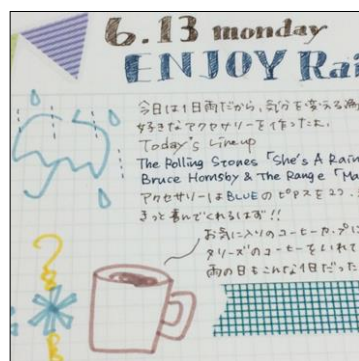 6.13 monday
ENJOY Rai
今日は1日雨だから、気分を変える為
好きなアクセサリーを作ったよ。
Today's Lineup
The Rolling Stones「She's A Rain
Bruce Hornsby & The Range「Ma
アクセサリーはBLUEのピアスを2つ、
きっと喜んでくれるはず!!
お気に入りのコーヒーカップに
タリーズのコーヒーをいれて
雨の日もこんな1日だった